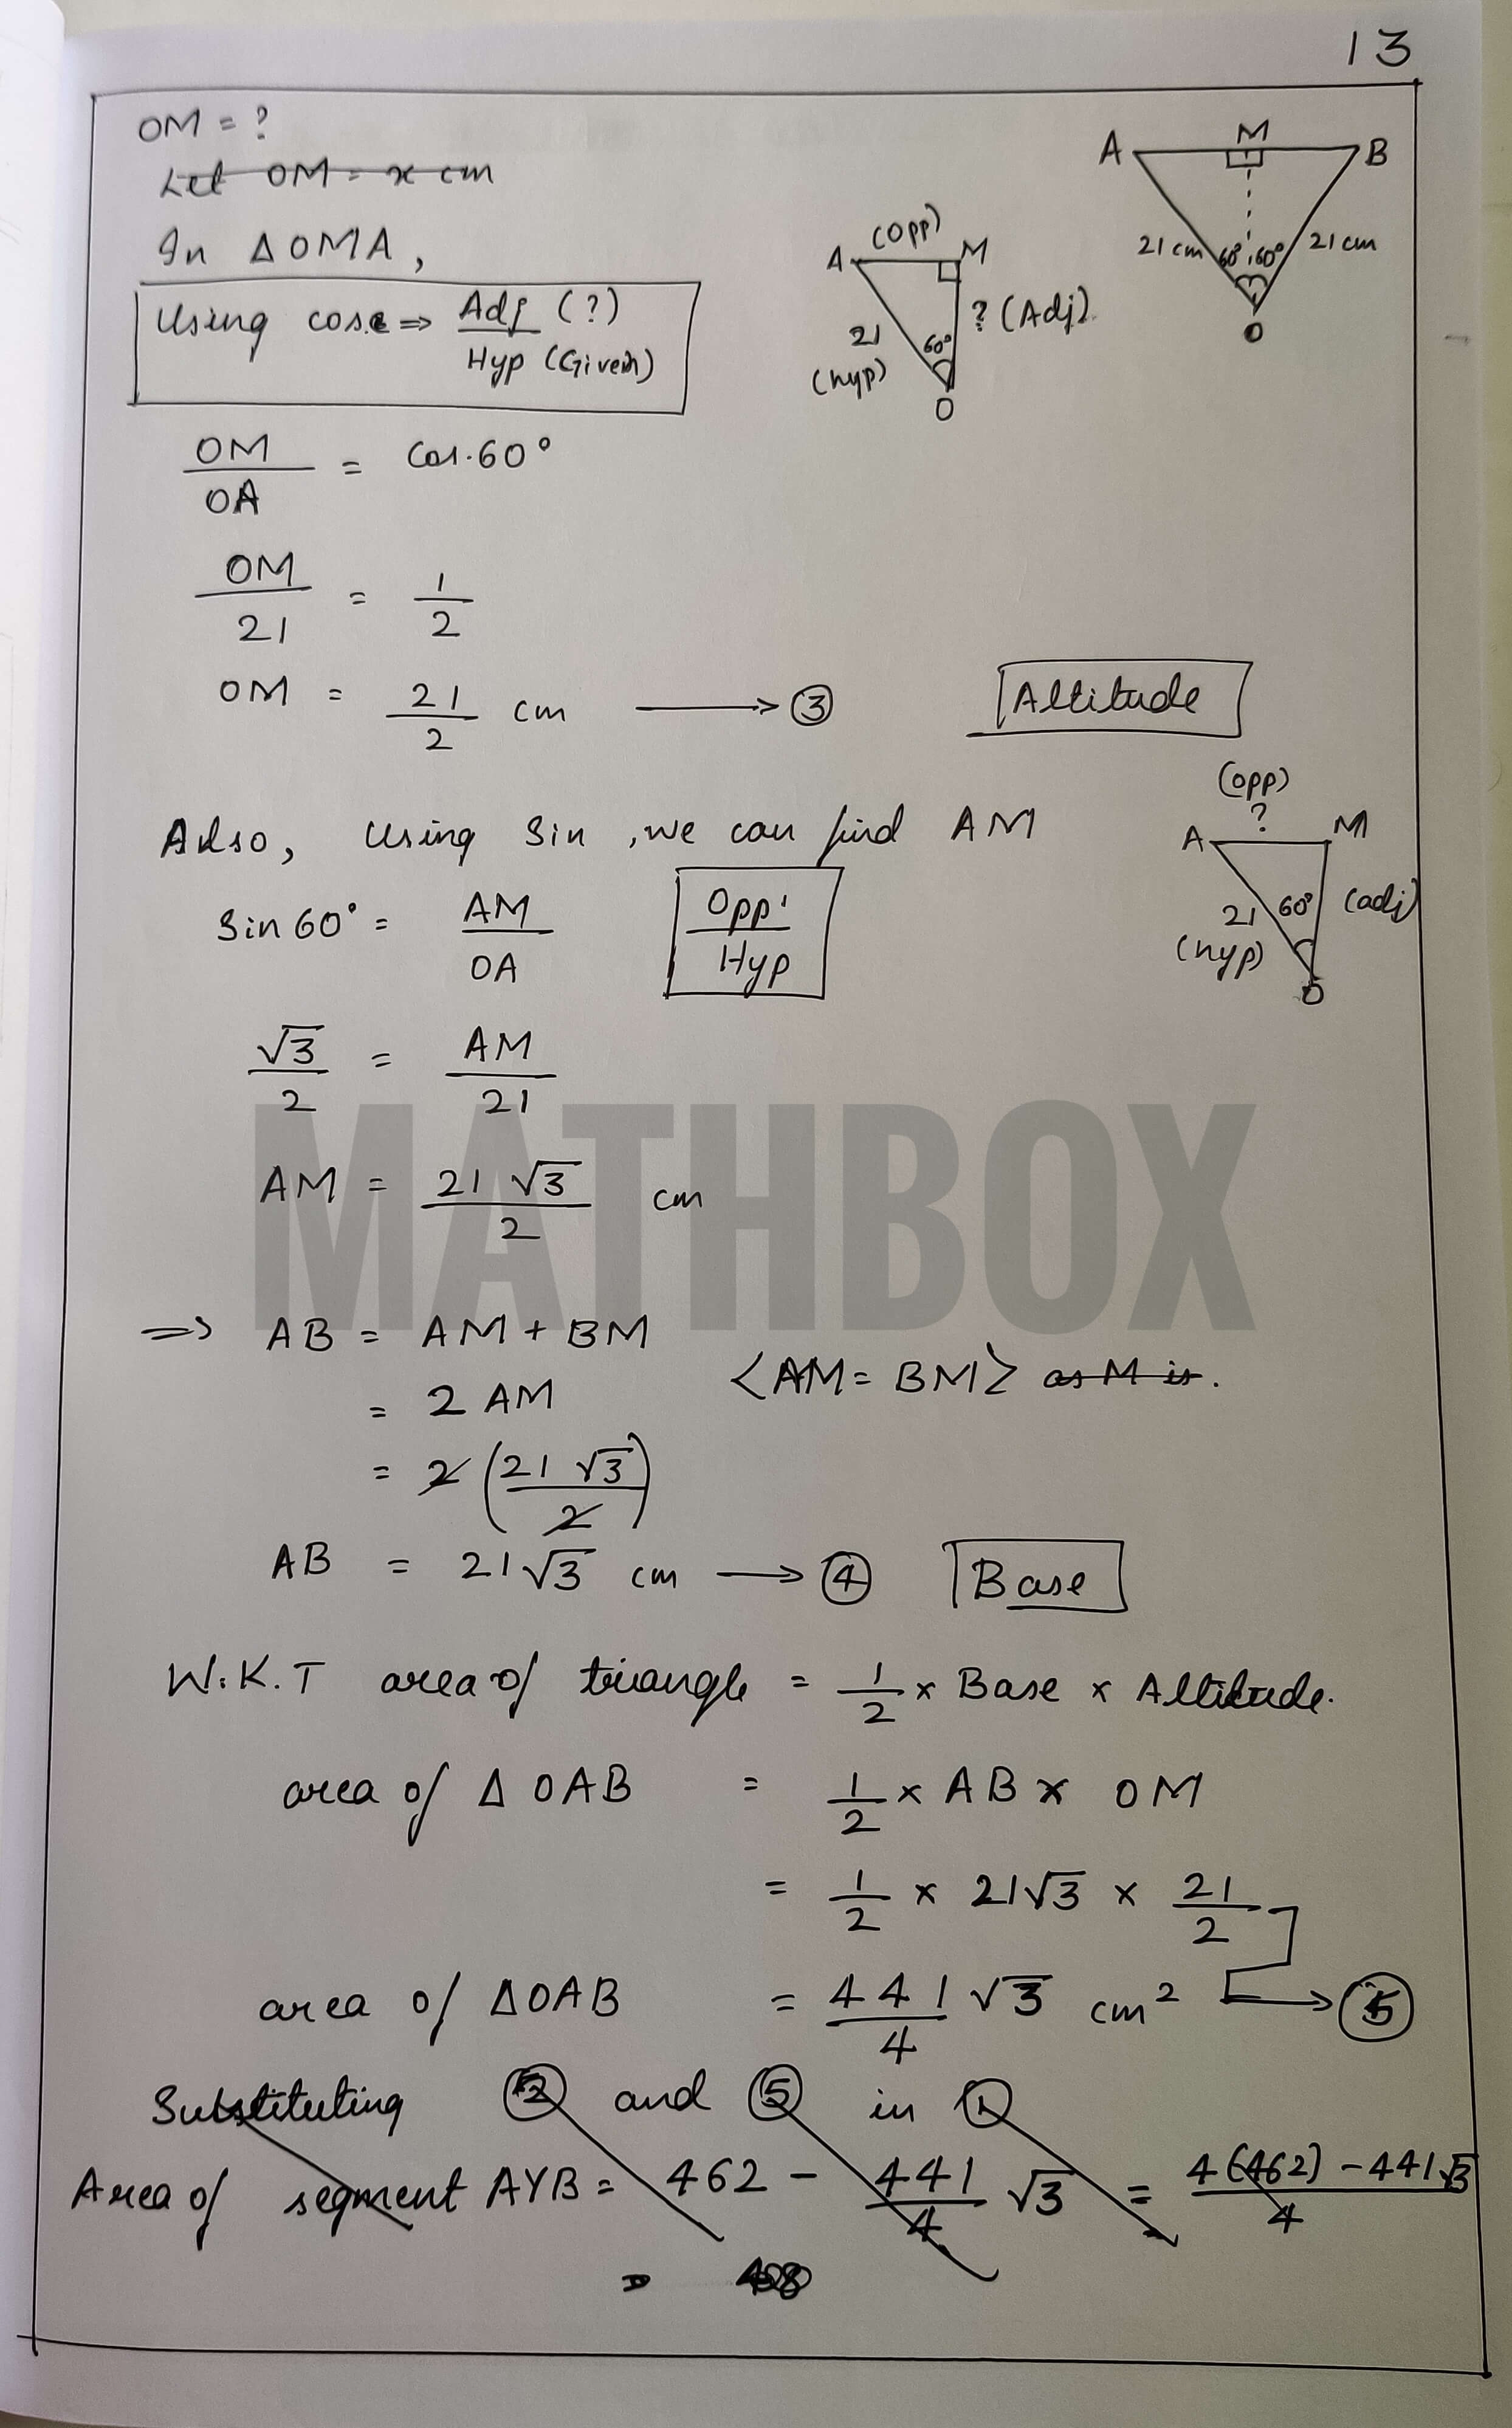 13
OM = ?
Let OM = x cm
In △OMA,
Using cos ⇒ Adj (?) / Hyp (Given)
A (opp) M
21 (hyp) 60° ? (Adj)
O
A M B
21 cm 60° 60° 21 cm
O
OM / OA = Cos 60°
OM / 21 = 1 / 2
OM = 21 / 2 cm → ③ Altitude
Also, using Sin, we can find AM
Sin 60° = AM / OA Opp / Hyp
(opp)
A ? M
21 (hyp) 60° (adj)
O
√3 / 2 = AM / 21
AM = 21 √3 / 2 cm
MATHBOX
⇒ AB = AM + BM
= 2 AM <AM = BM> as M is.
= 2 (21 √3 / 2)
AB = 21√3 cm → ④ Base
W.K.T area of triangle = 1/2 × Base × Altitude.
area of △ OAB = 1/2 × AB × OM
= 1/2 × 21√3 × 21/2
area of △OAB = 441/4 √3 cm² → ⑤
Substituting ② and ⑤ in ①
Area of segment AYB = 462 − 441/4 √3 = 4(462) − 441√3 / 4
=